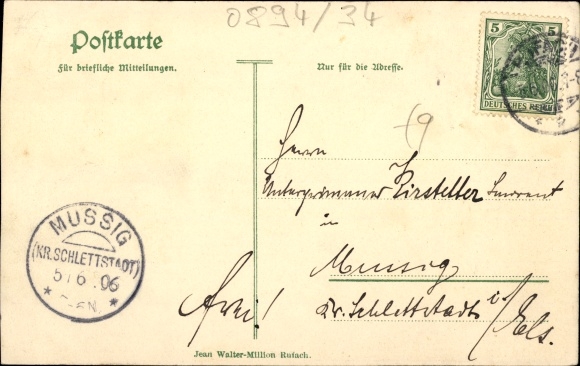 0894/34
Postkarte
Für briefliche Mitteilungen.
Nur für die Adresse.
5
DEUTSCHES REICH
Herrn
Unterprimaner Kirstetter
in
Mussig
Kr. Schlettstadt i/Els.
MUSSIG
(KR. SCHLETTSTADT)
5/6.06
Jean Walter-Million Rufach.